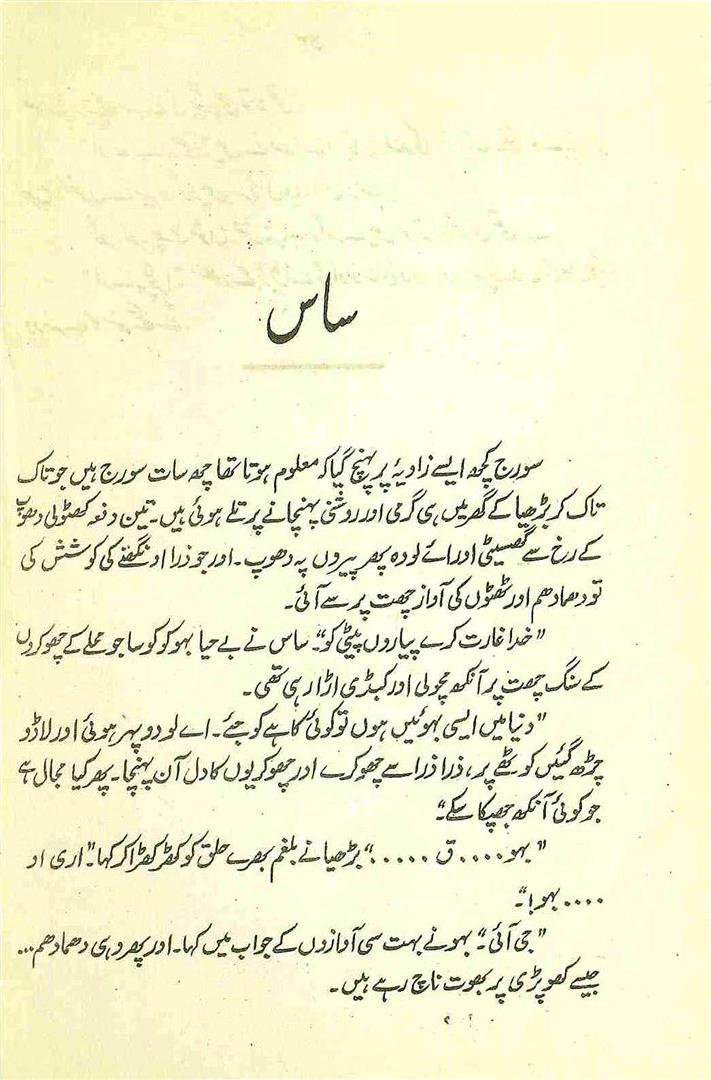 ساس
سورج کچھ ایسے زاویۂ پر پہنچ گیا کہ معلوم ہوتا تھا چھ سات سورج ہیں جو تاک
تاک کر بڑھیا کے گھر میں ہی گرمی اور روشنی پہنچانے پر تلے ہوئی ہیں۔ تین دفعہ کھٹولی دھوپ
کے رخ سے گھسیٹی اور اے لو وہ پھر پیروں پہ دھوپ۔ اور جو ذرا اونگھنے کی کوشش کی
تو دھمادھم اور ٹھٹوں کی آواز چھت پر سے آئی۔
"خدا غارت کرے پیاروں پیٹی کو"۔ ساس نے بے حیا بہو کو کوسا جو محلے کے چھوکروں
کے سنگ چھت پر آنکھ مچولی اور کبڈی اڑا رہی تھی۔
"دنیا میں ایسی بہوئیں ہوں تو کوئی کاہے کو جئے۔ اے لو دوپہر ہوئی اور لاڈو
چڑھ گئیں کوٹھے پر، ذرا ذرا سے چھوکرے اور چھوکریوں کا دل آن پہنچا۔ پھر کیا مجال ہے
جو کوئی آنکھ جھپکا سکے۔"
"بہو .... ق .....؛" بڑھیا نے بلغم بھرے حلق کو کھڑکھڑا کر کہا۔ "اری او
.... بہو!"۔
"جی آئی۔" بہو نے بہت سی آوازوں کے جواب میں کہا۔ اور پھر وہی دھمادھم...
جیسے کھوپڑی پر بھوت ناچ رہے ہیں۔